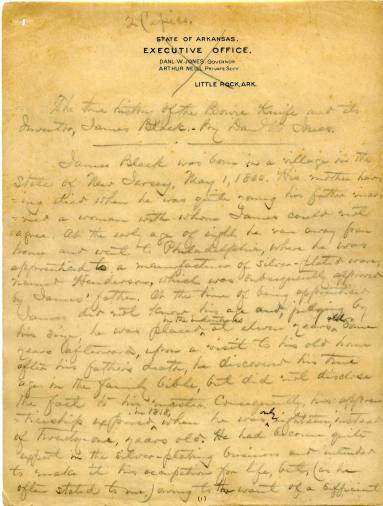 2 Copies.
STATE OF ARKANSAS.
EXECUTIVE OFFICE.
DANL. W. JONES, GOVERNOR
ARTHUR NEILL, PRIVATE SECY
LITTLE ROCK, ARK.
The true history of the Bowie Knife and its
Inventor, James Black. By Dan W. Jones.
James Black was born in a village in the
State of New Jersey, May 1, 1800. His mother hav-
ing died when he was quite young his father mar-
ried a woman with whom James could not
agree. At the early age of eight he ran away from
home and went to Philadelphia, where he was
apprenticed to a manufacturer of silver-plated ware,
named Henderson, which was subsequently approved
by James' father. At the time of being apprenticed
James did not know his age and, judging by
his size, he was placed at eleven years old. Some
years afterwards, upon a visit to his old home
after his father's death, he discovered his true
age in the family bible, but did not disclose
the fact to his master. Consequently, his appren-
ticeship expired, in 1818, when he was only eighteen, instead
of twenty-one, years old. He had become quite
expert in the silver-plating business and intended
to make it his occupation for life, but, (as he
often stated to me) owing to the want of a sufficient
(1)